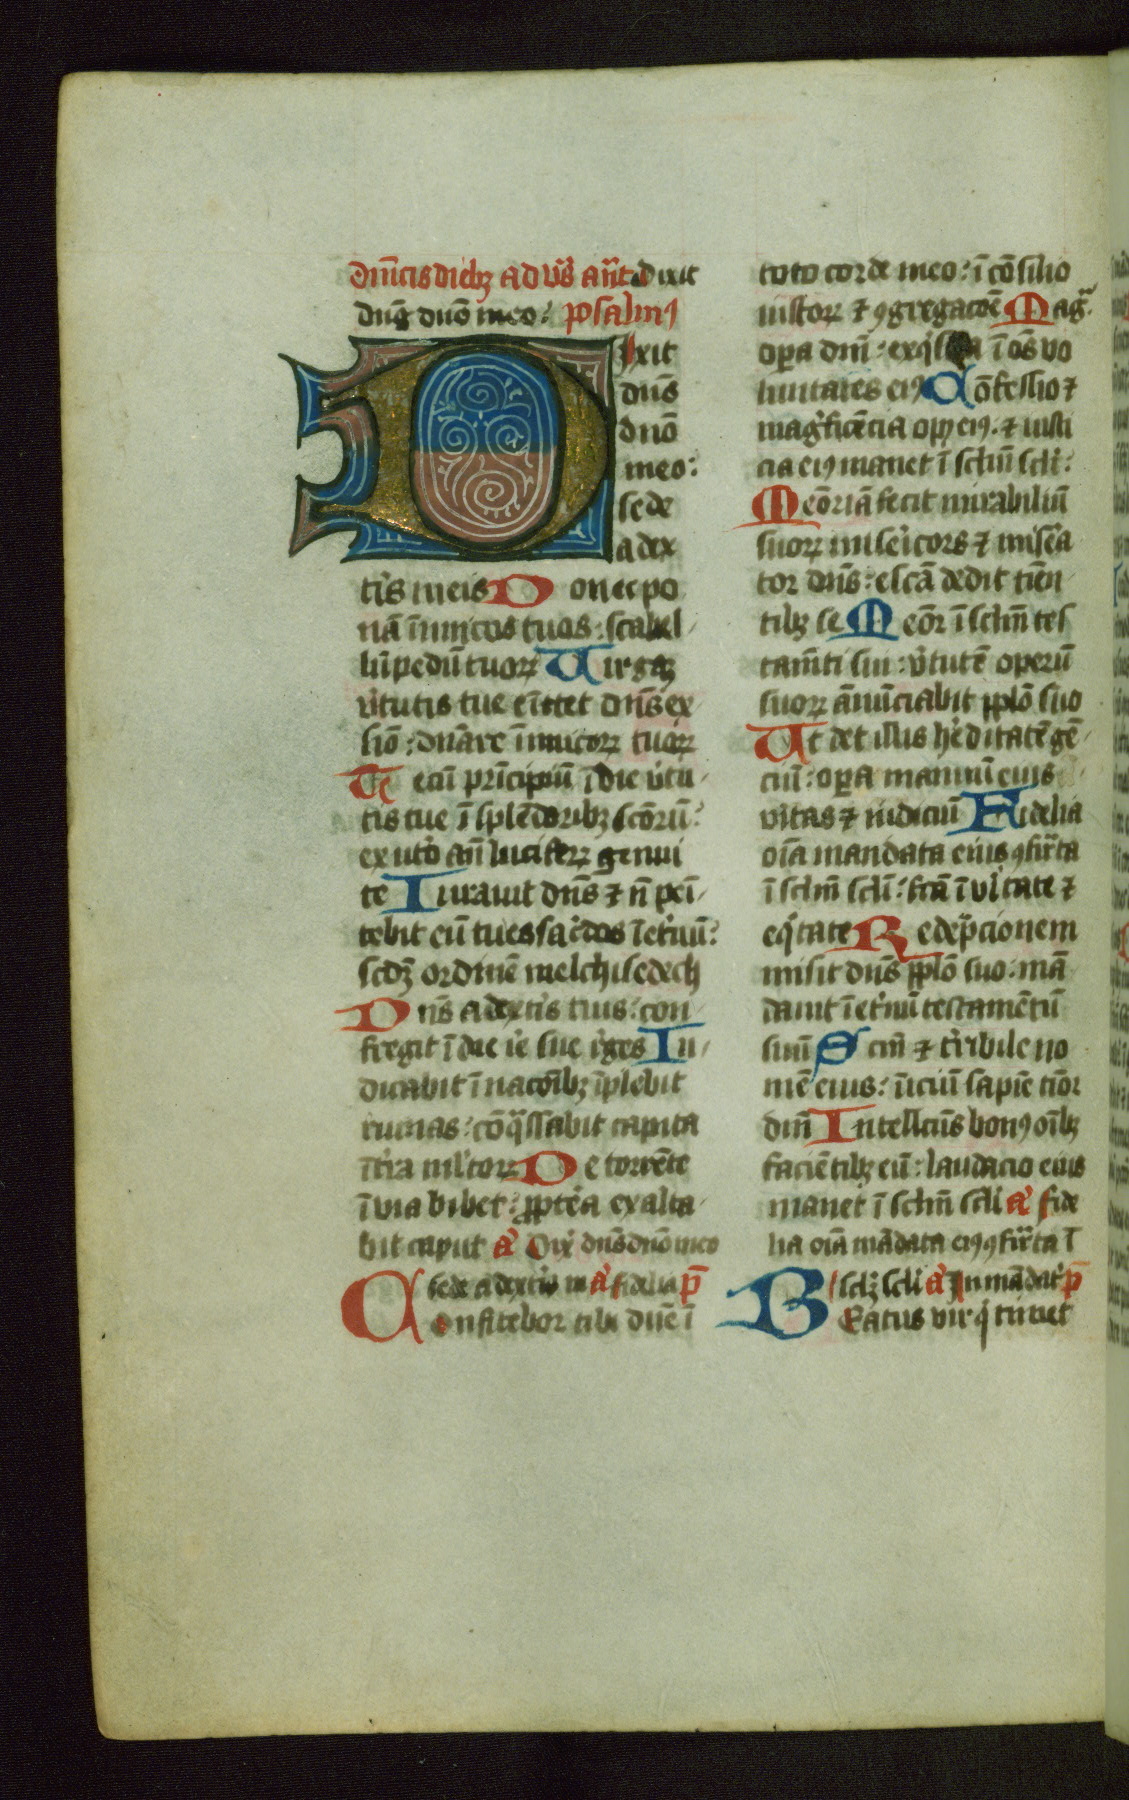 Dnicis dieb⁊ ad vs̄ an̄t Dixit
dn̄s dn̄o meo: psalmꝰ
Dixit
dn̄s
dn̄o
meo:
sede
a dex
tris meis Donec po
nā īimicos tuos: scabel
lū pedū tuoꝝ Virgā
v̓tutis tue em̄ittet dn̄s ex
sion: dn̄are īimicoꝝ tuoꝝ
Tecū prīcipiū ī die v̓tu
tis tue ī splēdorib⁊ scōrū:
ex ut̓o an̄ lucifeꝝ genui
te Iurauit dn̄s ⁊ n̄ peī
tebit eū tu es sac̓dos ī et̓nū:
scd⁊ ordinē melchisedech
Dn̄s a dextris tuis: con
fregit ī die ir̄e sue reges Iu
dicabit ī nacōib⁊ īplebit
ruinas: cōq̄ssabit capita
ī t̓ra ml̓toꝝ De torrēte
ī via bibet: ꝓpt̓ea exalta
bit caput a᷎ Dix̓ dn̄s dn̄o meo
sede a dextris m a᷎ fidelia p̄
Confitebor tibi dn̄e ī
toto corde meo: ī cōsilio
iustoꝝ ⁊ ꝯgregacōe Mag
oꝑa dn̄i: exq̓sita ī oēs vo
luntates eiꝰ Cōfessio ⁊
mag̓ficēcia opꝰ eiꝰ. ⁊ iusti
cia eiꝰ manet ī sclm̄ scli:
Meōriā fecit mirabiliū
suoꝝ miser̓icors ⁊ misera
tor dn̄s: escā dedit timen
tib⁊ se Meōr ī sclm̄ tes
tam̄ti sui: v̓tutē operū
suoꝝ ānūciabit ꝓplō suo
Ut det illis h̓editatē gē
ciū: oꝑa manuū eius
vitas ⁊ iudiciū Fidelia
oīa mandata eius ꝯfir̄ta
ī sclm̄ scli: fcā ī v̓itate ⁊
eq̓tate Redēpcionem
misit dn̄s ꝓplō suo: mā
dauit ī et̓nū testamētū
suū Scm̄ ⁊ t̓ribile no
mē eius: īiciū sapiē tior
dn̄i Intellcūs bonꝰ oīb⁊
faciētib⁊ eū: laudacio eius
manet ī sclm̄ scli a᷎ fide
lia oīa mādata eiꝰ ꝯfir̄ta ī
scl⁊ scli a᷎ In mādat᷎ p̄
Beatus vir q̓ timet